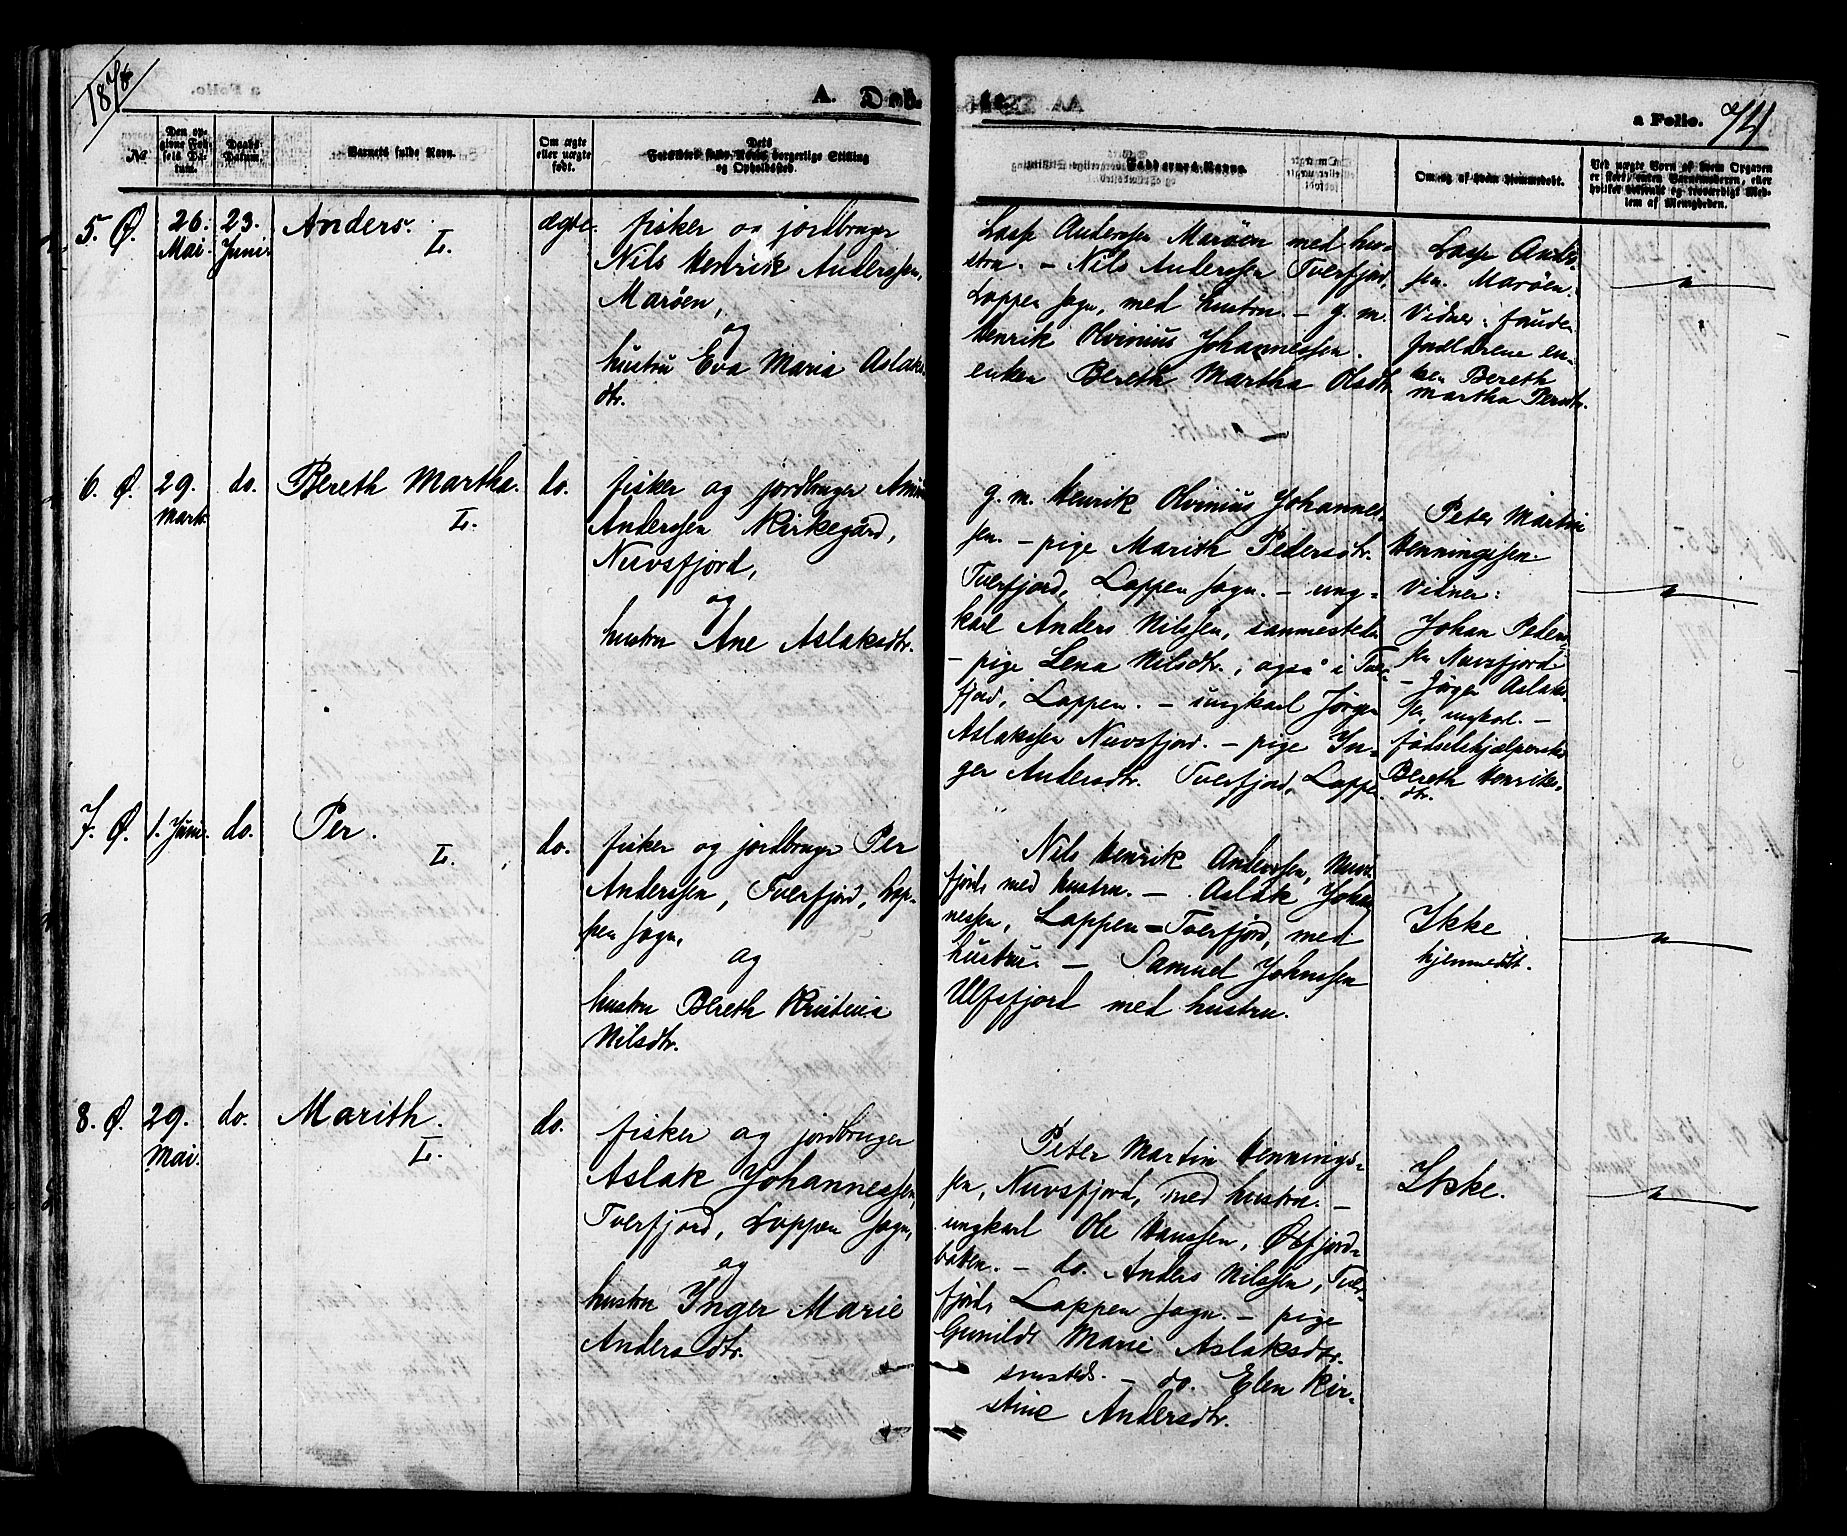 a Folio.
A. Døb.
a Folio. 74
№
Den opgivne Fødsels Datum.
Daabs-Datum.
Barnets fulde Navn.
Om ægte eller uægte født.
Forældres fulde Navn borgerlige Stilling og Opholdssted.
Faddernes Navne.
Om og af hvem hjemmedøbt.
5. Ø.
26. Mai.
23. Juni.
Anders.
L.
ægte.
fisker og jordbruger
Nils Henrik Anderssen,
Marøen,
og
hustru Eva Maria Aslaks
dtr.
Lasse Anderssen Marøen med hu-
stru. – Nils Anderssen Tverfjord,
Loppen sogn, med hustru. – g. m.
Henrik Olvinius Johannessen.
enken Bereth Martha Olsdtr.
Larsdtr.
Lasse Anders-
sen. Marøen.
Vidner:
en-
ken Bereth
Martha Persdtr.
6. Ø.
29. Marts
do.
Bereth Martha.
L.
do.
fisker og jordbruger
Anderssen Kirkegård,
Nuvsfjord,
og
hustru Ane Aslaksdtr.
g. m. Henrik Olvinius Johannes-
sen. – pige Marith Pedersdtr.
Tverfjord, Loppen sogn. – ung-
karl Anders Nilssen, sammesteds
– pige Lena Nilsdtr., også i Tver-
fjord, Loppen. – ungkarl Jørgen
Aslakssen Nuvsfjord. – pige In-
ger Andersdtr. Tverfjord, Loppen.
Peter Martin
Henningssen.
Vidner:
Johan Peders-
sen Nuvsfjord
– Jørgen Aslaks-
sen, ungkarl. –
fødselshjælperske
Bereth Henriks-
dtr.
7. Ø.
1. Juni.
do.
Per.
L.
do.
fisker og jordbruger Per
Anderssen, Tverfjord, Lop-
pen sogn,
og
hustru Bereth Kristina
Nilsdtr.
Nils Henrik Anderssen, Nuvs-
fjord, med hustru. – Aslak Johan-
nessen, Loppen=Tverfjord, med
hustru. – Samuel Johnssen
Ulfsfjord med hustru.
Ikke
hjemmedøbt.
8. Ø.
29. Mai.
do.
Marith.
L.
do.
fisker og jordbruger
Aslak Johannessen,
Tverfjord, Loppen sogn,
og
hustru Inger Marie
Andersdtr.
Peter Martin Hennings-
sen, Nuvsfjord, med hustru. –
ungkarl Ole Hanssen, Øxfjord-
botten. – do. Anders Nilssen, Tver-
fjord, Loppen sogn. – pige
Gunild Marie Aslaksdtr.
smsteds. – do. Elen Kir-
stine Andersdtr.
Ikke.